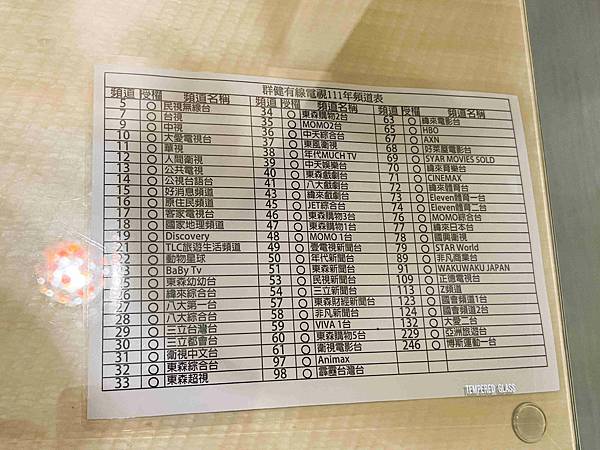 群健有線電視111年頻道表
頻道 授權 頻道名稱 頻道 授權 頻道名稱 頻道 授權 頻道名稱
5 ○ 民視無線台 34 ○ 東森購物2台 63 ○ 緯來電影台
7 ○ 台視 35 ○ MOMO2台 65 ○ HBO
9 ○ 中視 36 ○ 中天綜合台 67 ○ AXN
10 ○ 大愛電視台 37 ○ 東風衛視 68 ○ 好萊屋電影台
11 ○ 華視 38 ○ 年代MUCH TV 69 ○ SYAR MOVIES SOLD
12 ○ 人間衛視 39 ○ 中天娛樂台 70 ○ 緯來育樂台
13 ○ 公共電視 40 ○ 東森戲劇台 71 ○ CINEMAX
14 ○ 公視台語台 41 ○ 八大戲劇台 72 ○ 緯來體育台
15 ○ 好消息頻道 43 ○ 緯來戲劇台 73 ○ Eleven體育一台
16 ○ 原住民頻道 45 ○ JET綜合台 74 ○ Eleven體育二台
17 ○ 客家電視台 46 ○ 東森購物3台 76 ○ MOMO綜合台
18 ○ 國家地理頻道 47 ○ 東森購物1台 77 ○ 緯來日本台
19 ○ Discovery 48 ○ MOMO 1台 78 ○ 國興衛視
21 ○ TLC旅遊生活頻道 49 ○ 壹電視新聞台 79 ○ STAR World
22 ○ 動物星球 50 ○ 年代新聞台 89 ○ 非凡商業台
23 ○ BaBy Tv 51 ○ 東森新聞台 91 ○ WAKUWAKU JAPAN
25 ○ 東森幼幼台 53 ○ 民視新聞台 109 ○ 正德電視台
26 ○ 緯來綜合台 54 ○ 三立新聞台 113 ○ IZ頻道
27 ○ 八大第一台 57 ○ 東森財經新聞台 123 ○ 國會頻道1台
28 ○ 八大綜合台 58 ○ 非凡新聞台 124 ○ 國會頻道2台
29 ○ 三立台灣台 59 ○ VIVA 1台 132 ○ 大愛二台
30 ○ 三立都會台 60 ○ 東森購物5台 229 ○ 亞洲旅遊台
31 ○ 衛視中文台 61 ○ 衛視電影台 246 ○ 博斯運動一台
32 ○ 東森綜合台 97 ○ Animax
33 ○ 東森超視 98 ○ 霹靂台灣台
TEMPERED GLASS